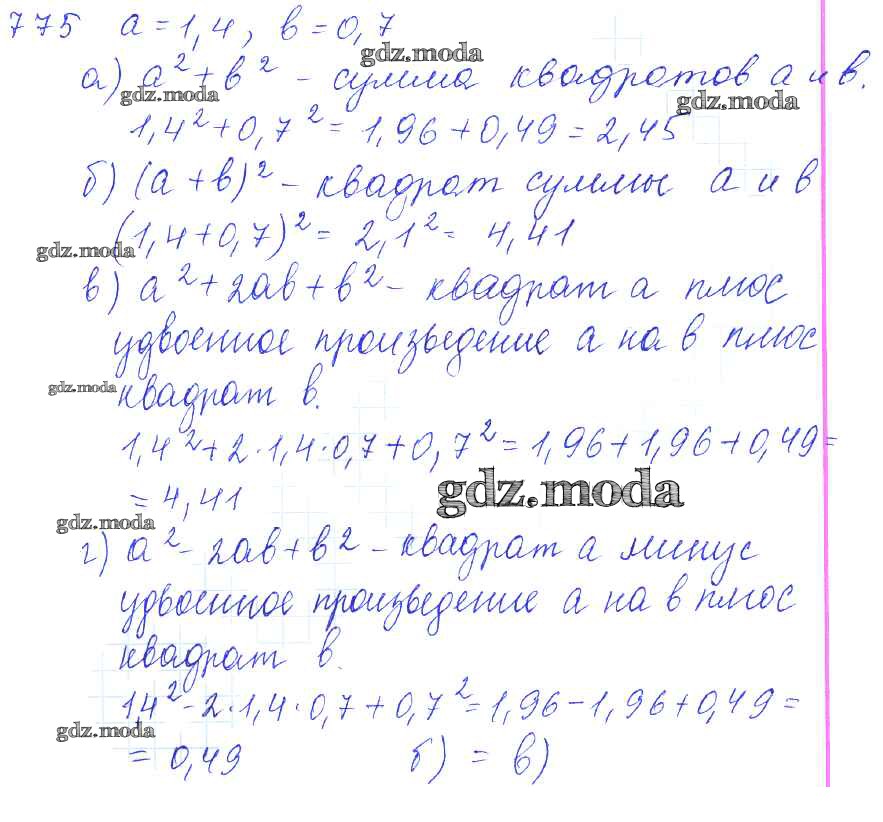 775 a = 1,4, b = 0,7
gdz.moda
а) a² + b² - сумма квадратов a и b.
gdz.moda
gdz.moda
1,4² + 0,7² = 1,96 + 0,49 = 2,45
б) (a + b)² - квадрат суммы a и b
(1,4 + 0,7)² = 2,1² = 4,41
gdz.moda
в) a² + 2ab + b² - квадрат a плюс
удвоенное произведение a на b плюс
gdz.moda
квадрат b.
1,4² + 2·1,4·0,7 + 0,7² = 1,96 + 1,96 + 0,49 =
= 4,41
gdz.moda
gdz.moda
г) a² - 2ab + b² - квадрат a минус
удвоенное произведение a на b плюс
квадрат b.
1,4² - 2·1,4·0,7 + 0,7² = 1,96 - 1,96 + 0,49 =
gdz.moda
= 0,49 б) = в)